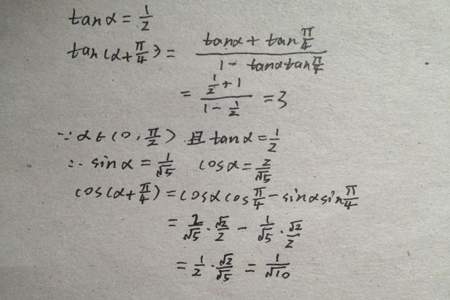 tanα = 1/2
tan(α + π/4) = (tanα + tan π/4) / (1 - tanα tan π/4)
= (1/2 + 1) / (1 - 1/2) = 3
∵ α∈(0, π/2) 且 tanα = 1/2
∴ sinα = 1/√5 cosα = 2/√5
cos(α + π/4) = cosα cos π/4 - sinα sin π/4
= 2/√5 · √2/2 - 1/√5 · √2/2
= 1/2 · √2/√5 = 1/√10